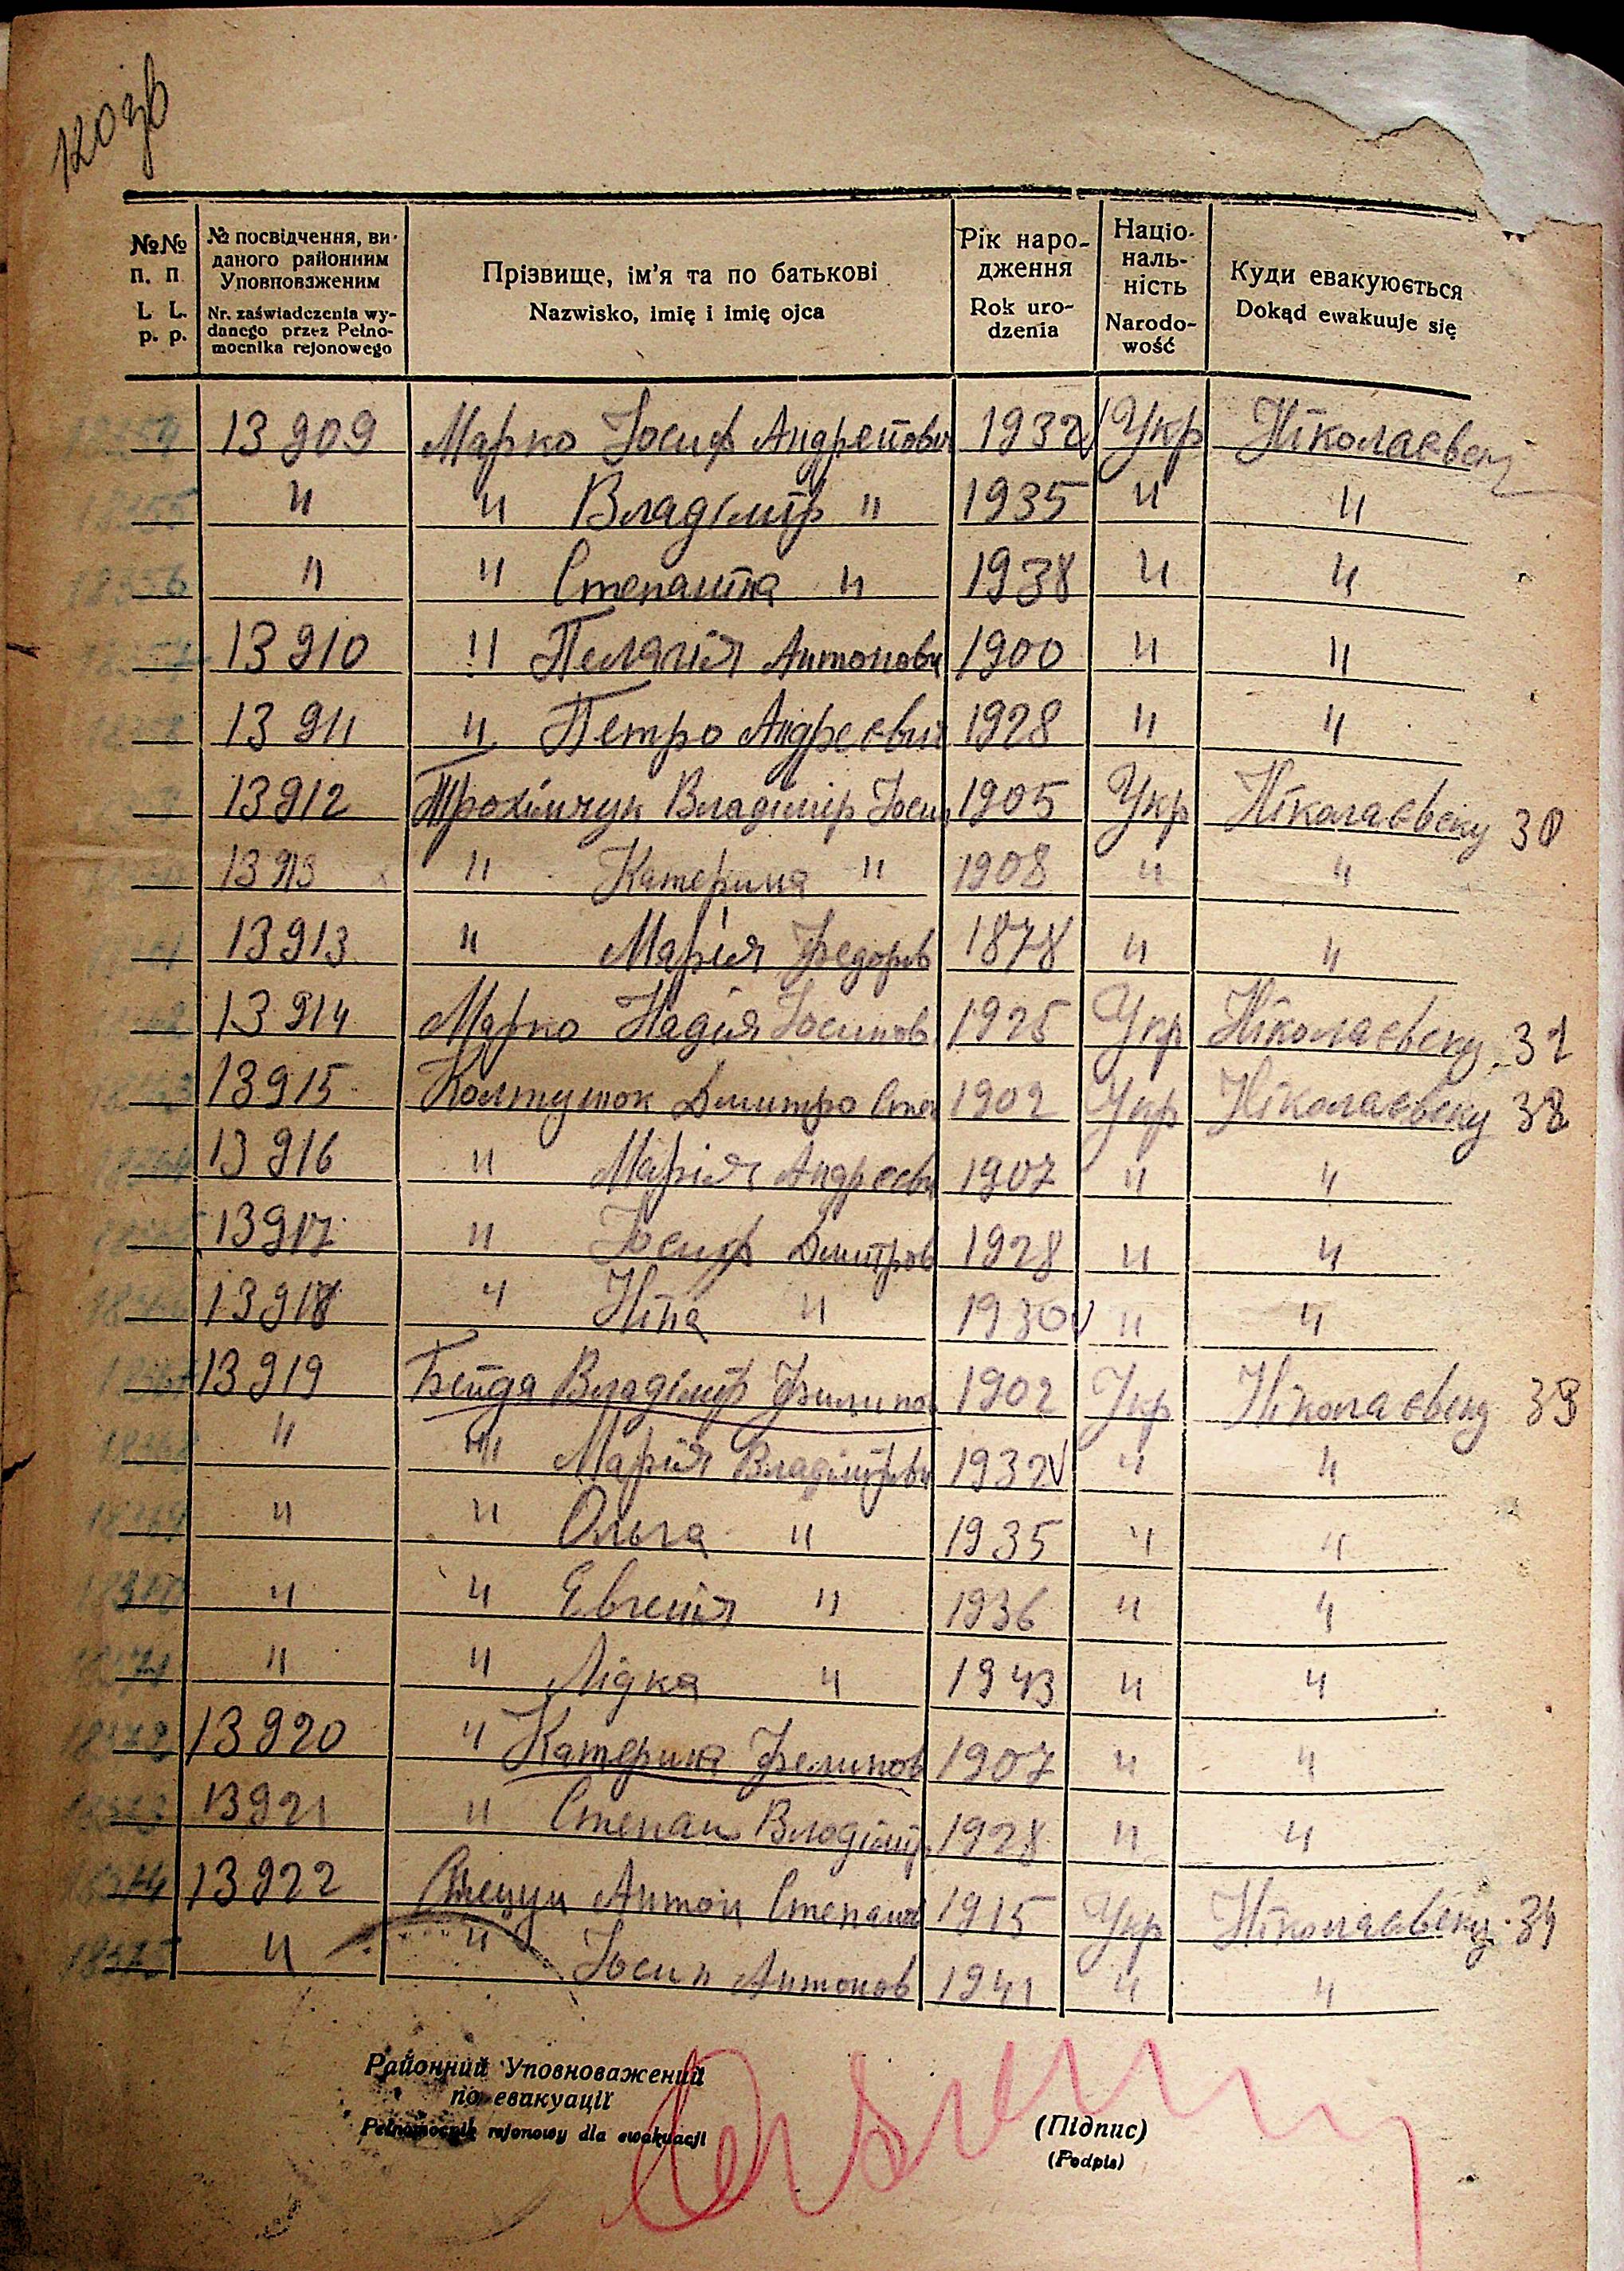 120 зв
№№ п. п. L. L. p. p.
№ посвідчення, виданого районним Уповноваженим
Nr. zaświadczenia wydanego przez Pełnomocnika rejonowego
Прізвище, ім'я та по батькові
Nazwisko, imię i imię ojca
Рік народження
Rok urodzenia
Національність
Narodowość
Куди евакуюється
Dokąd ewakuuje się
13909 Марко Йосиф Андрейович 1932 Укр Ніколаєвску
" " Владімір " 1935 " "
18356 " " Стефанія " 1938 " "
13910 " Пелагія Антонови 1900 " "
13911 " Петро Андреєвич 1928 " "
13912 Трохімчук Владімір Йоси 1905 Укр Ніколаєвску 30
13913 " Катерина " 1908 " "
13913 " Марія Федоров 1878 " "
13914 Марко Надія Йосипов 1925 Укр Ніколаєвску 31
13915 Колтушок Дмитро Степ 1902 Укр Ніколаєвску 32
13916 " Марія Андреєви 1907 " "
13917 " Йосиф Дмитров 1928 " "
13918 " Ніна " 1930 " "
13919 Бейда Владімір Филипов 1902 Укр Ніколаєвску 33
18368 " " Марія Владімірови 1932 " "
18369 " " Ольга " 1935 " "
18370 " " Евгенія " 1936 " "
18371 " " Лідка " 1943 " "
18372 13920 " Катерина Фелипов 1907 " "
18373 13921 " Степан Владімір 1928 " "
18374 13922 Антон Степанов 1915 Укр Ніколаєвску 34
18375 " " Йосип Антонов 1941 " "
Районний Уповноважений
по евакуації
Pełnomocnik rejonowy dla ewakuacji
(Підпис)
(Podpis)